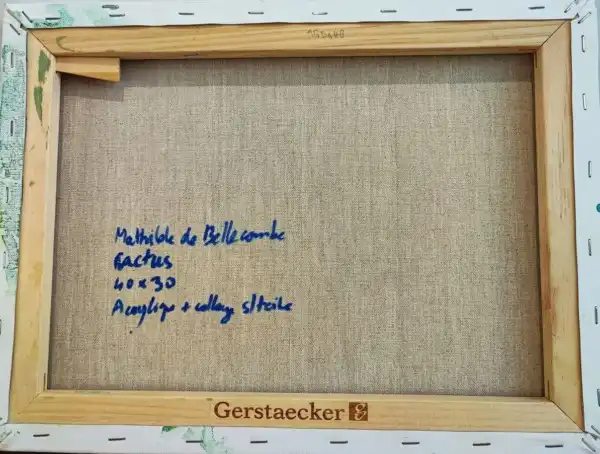 Mathilde de Bellecombe
Cactus
40 x 30
Acrylique + collage s/toile
Gerstaecker